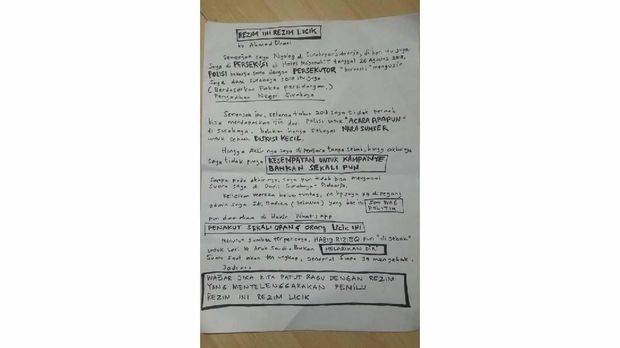 REZIM INI REZIM LICIK
by Ahmad Dhani
Semenjak saya Nyaleg di Surabaya-Sidoarjo, di hari itu juga
saya di PERSEKUSI di Hotel Majapahit tanggal 26 Agustus 2018,
POLISI bekerja sama dengan PERSEKUTOR "berhasil" mengusir
saya dari Surabaya sore itu juga.
(Berdasarkan Fakta persidangan)
Pengadilan Negeri Surabaya
Semenjak itu, selama tahun 2018 saya tidak pernah
bisa mendapatkan ijin dari Polisi untuk "ACARA APAPUN"
di Surabaya, bahkan hanya sebagai NARA SUMBER
untuk sebuah DISKUSI KECIL.
Hingga Akhir nya saya di penjara tanpa sebab, hingga akhirnya
saya tidak punya KESEMPATAN UNTUK KAMPANYE
BAHKAN SEKALI PUN
Sampai pada akhir nya, saya pun tidak bisa mengawal
suara saya di Dapil Surabaya-Sidoarjo.
mereka belum tuntas, no hp saya yg di pegang
admin saya yang ber
POLITIK
pun di Whatsapp
PENAKUT SEKALI ORANG ORANG LICIK INI
Menurut sumber terpercaya, HABIB RIZIEQ pun "di sekak"
untuk lari ke Arab Saudi. Bukan MELARIKAN DIRI
Suatu saat akan ter ungkap, Jenderal siapa yg menyekak.
Jadi...
WAJAR JIKA KITA PATUT RAGU DENGAN REZIM
YANG MENYELENGGARAKAN PEMILU
REZIM INI REZIM LICIK